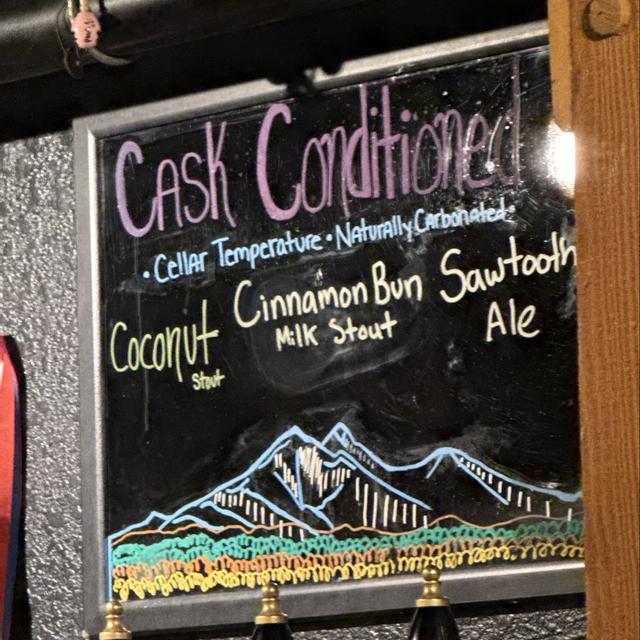 Cask Conditioned
• Cellar Temperature • Naturally Carbonated •
Coconut
Stout
Cinnamon Bun
Milk Stout
Sawtooth
Ale